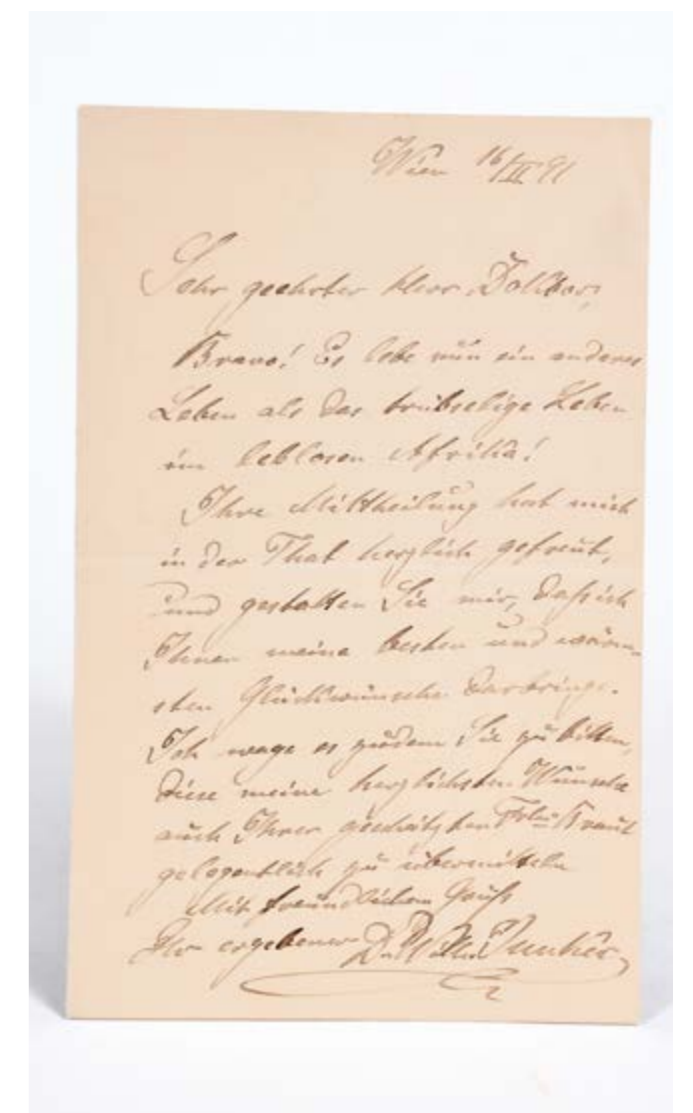 Wien 16/II 91
Sehr geehrter Herr Doktor,
Bravo! Es lebe nun ein anderes
Leben als das trübselige Leben
im leblosen Afrika!
Ihre Mittheilung hat mich
in der That herzlich gefreut,
und gestatten Sie mir, daß ich
Ihnen meine besten und wärm-
sten Glückwünsche darbringe.
Ich wage es zudem Sie zu bitten,
diese meine herzlichsten Wünsche
auch Ihrer geschätzten Frln Braut
gelegentlich zu übermitteln
Mit freundlichem Gruß
Ihr ergebener Dr. W. Junker